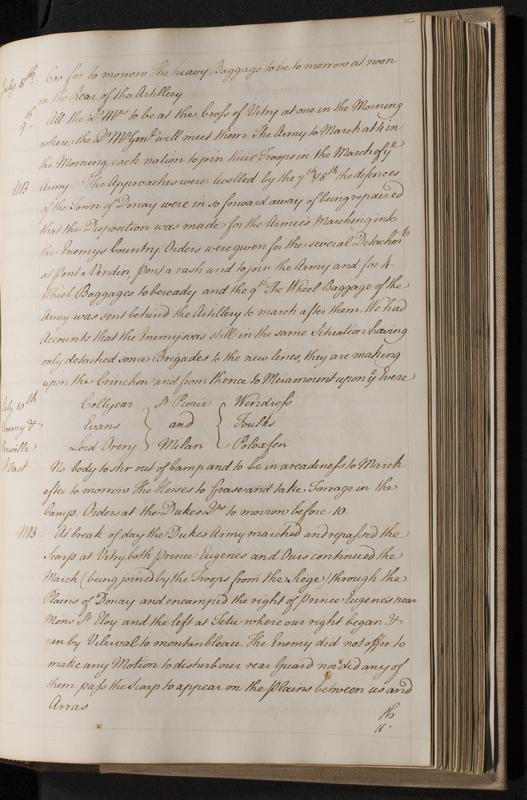 July 8th
bas for to morrow The heavy Baggage to be to morrow at noon
in the Rear of the Artillery
9th All the Qr Mrs to be at the Cross of Vitry at one in the Morning
where the Qr Mr Genl will meet them The Army to March at 4 in
the Morning each nation to join their Troops in the March of ye
NB Army. The Approaches were levelled by the 7th & 8th the defences
of the Town of Douay were in so forward away of being repaired
that the Disposition was made for the Armies Marching into
the Enemys Country. Orders were given for the several Detachmts
at Pont a Vendin, Pont a rash and to join the Army and for 4
Wheel Baggages to be ready and the 9th The Wheel Baggage of the
Army was sent behind the Artillery to march after them. We had
Accounts that the Enemy was still in the same Situation having
only detached some Bregades to the new lines, they are making
upon the Crinchon and from thence to Miramount upon ye Evere
July 10th
Collyear St Pierce Wendress
Evans and Foulks
Lord Orery Milan Poloxfen
& Vast
No body to stir out of Camp and to be in areadiness to March
after to morrow The Horses to Grase and take Forrage in the
Camp. Orders at the Dukes Qrs to morrow before 10
NB At break of day the Dukes Army marched and repassed the
Scarp at Vitry both prince Eugenes and Ours continued the
March (being joined by the Troops from the Siege) through the
Plains of Douay and encamped the right of prince Eugenes near
Mons St Eloy and the left at Tetu where our right began &
run by Vilerval to montanbleau. The Enemy did not offer to
make any Motion to disturb our rear Guard nor did any of
them pass the Scarp to appear on the plains between us and
Arras
11th